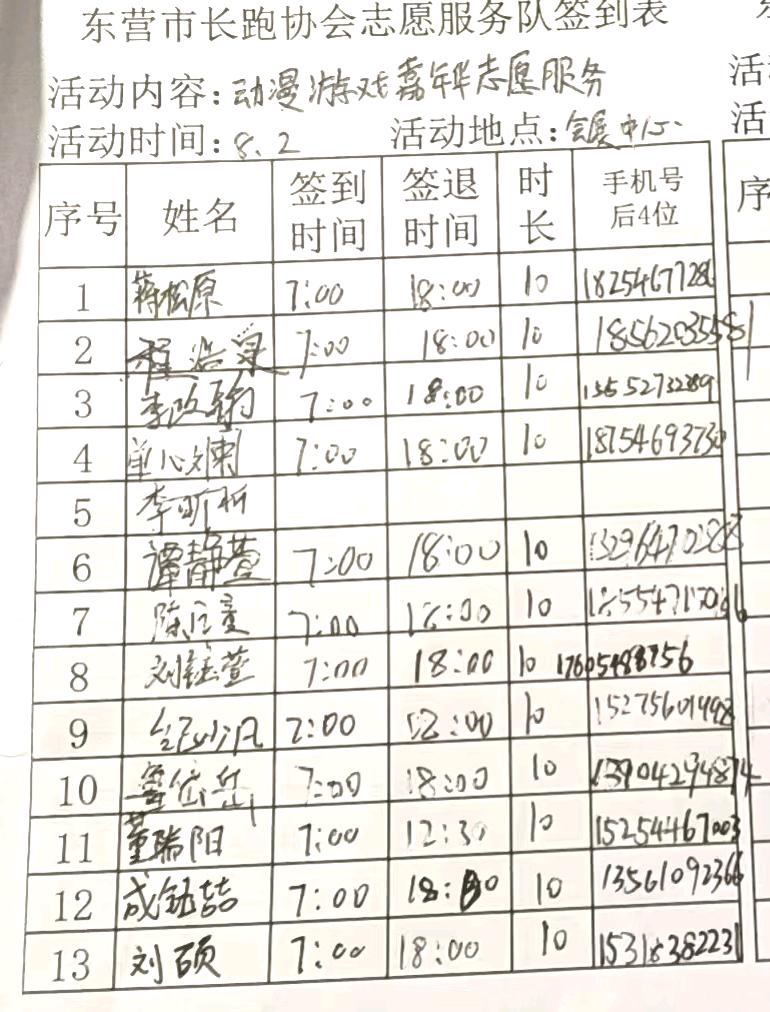 东营市长跑协会志愿服务队签到表
活动内容:动漫游戏嘉年华志愿服务
活动时间:8.2 活动地点:会展中心
序号 姓名 签到时间 签退时间 时长 手机号后4位
1 蒋松原 7:00 18:00 10 18254677286
2 程浩 7:00 18:00 10 18562035581
3 李政翰 7:00 18:00 10
4 单心 7:00 18:00 10 18754693730
5 李昕
6 谭静萱 7:00 18:00 10
7 陈 7:00 18:00 10
8 刘钰萱 7:00 18:00 10 17605488756
9 7:00 10 15275601498
10 岱岳 7:00 18:00 10
11 董瑞阳 7:00 12:30 10 15254467003
12 成钰喆 7:00 10 13561092366
13 刘硕 7:00 18:00 10 15318382231